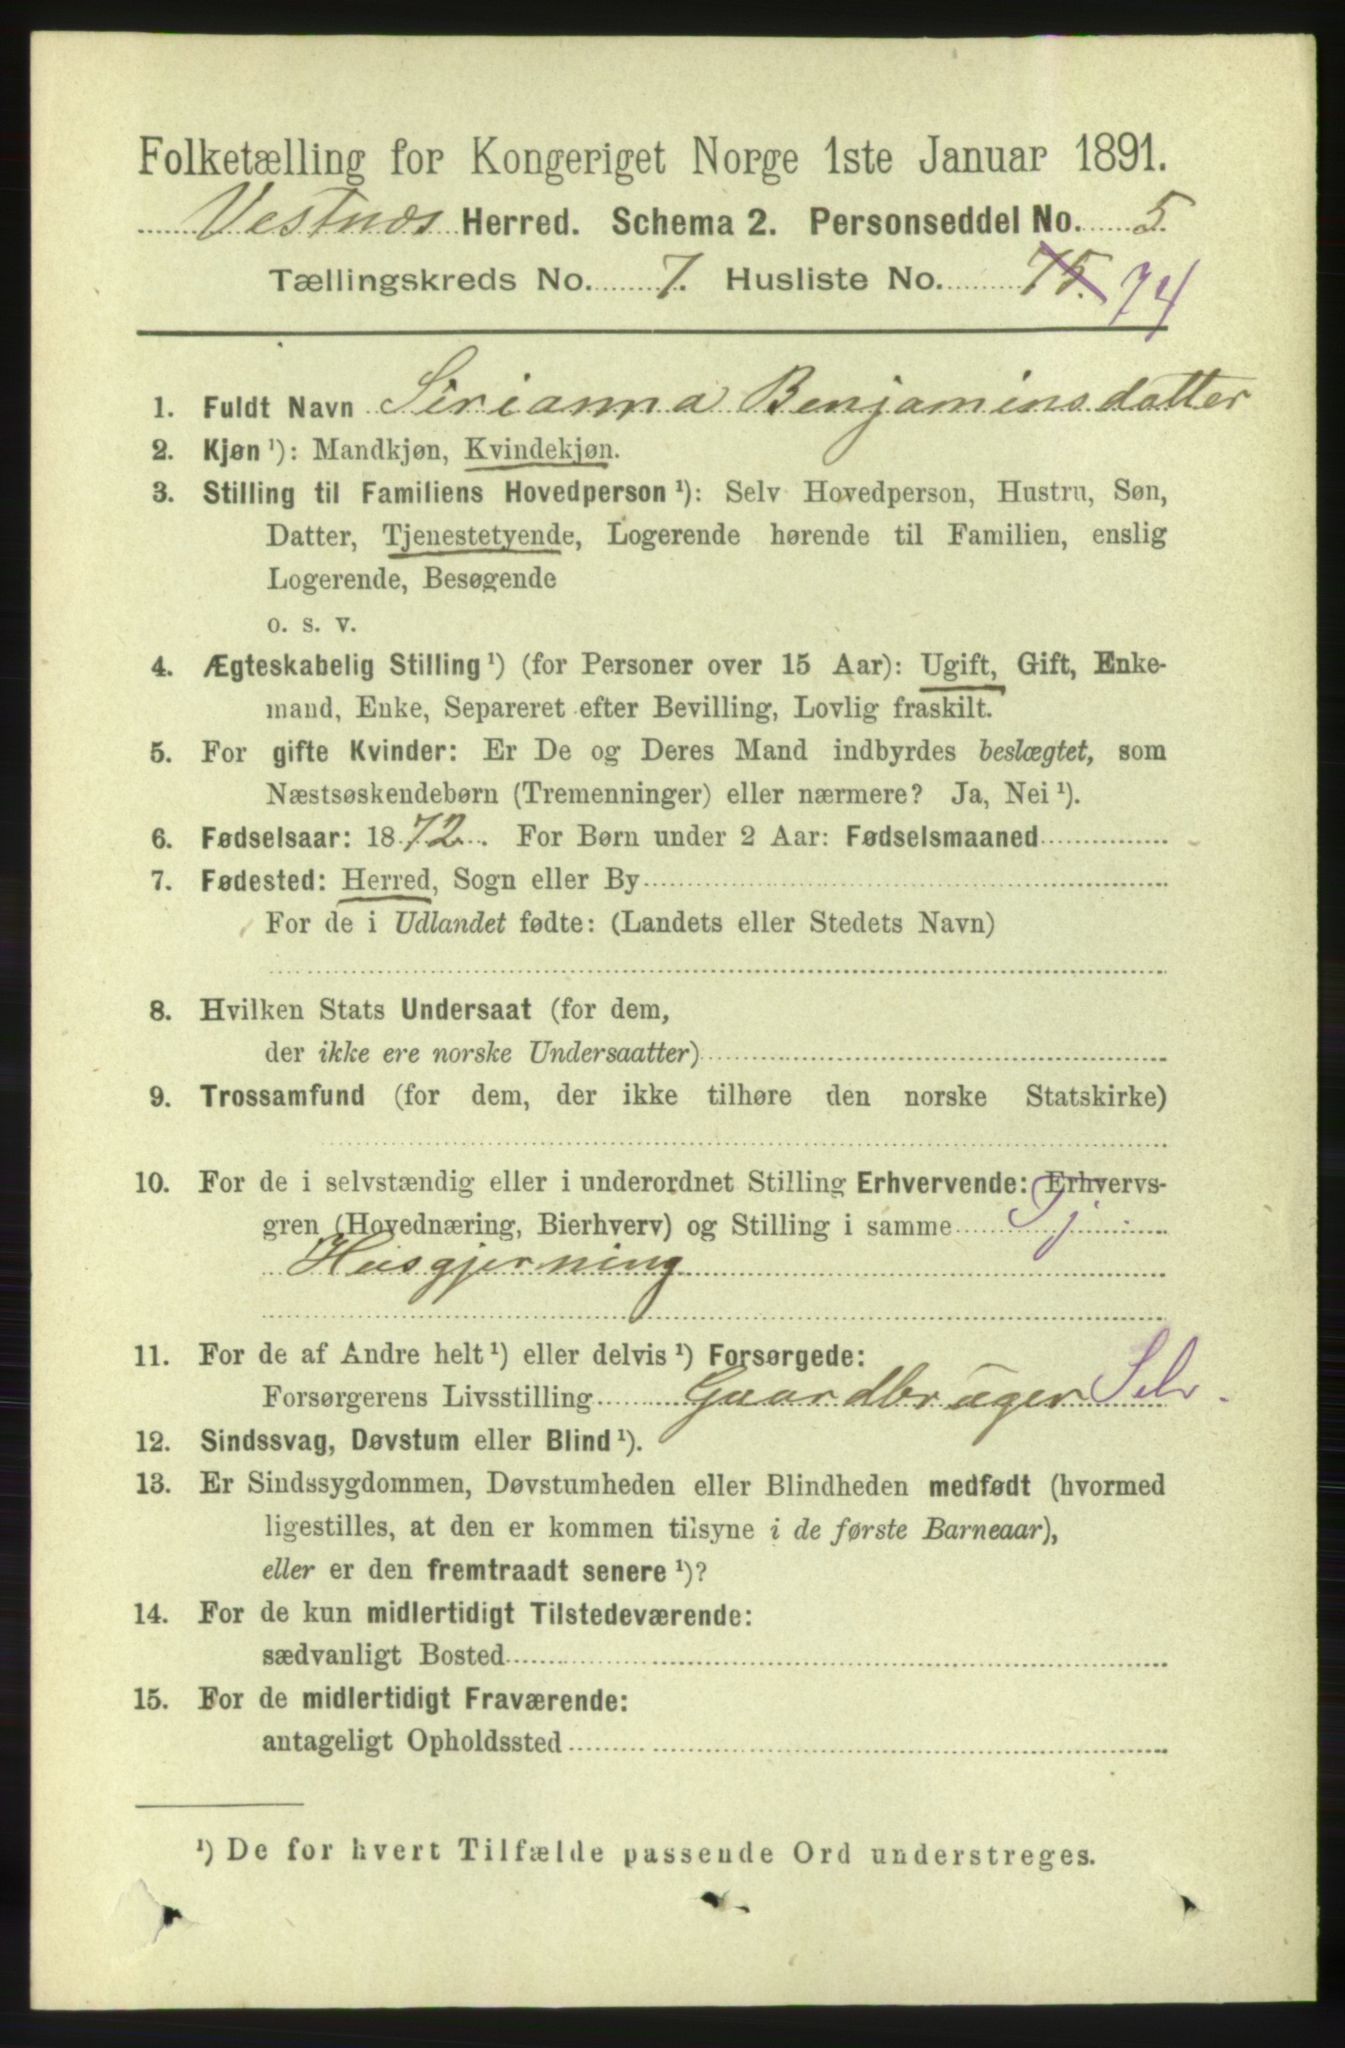 Folketælling for Kongeriget Norge 1ste Januar 1891.
Vestnæs Herred. Schema 2. Personseddel No. 5.
Tællingskreds No. 7. Husliste No. 75. 74
1. Fuldt Navn Sirianna Benjaminsdatter
2. Kjøn ¹): Mandkjøn, Kvindekjøn.
3. Stilling til Familiens Hovedperson ¹): Selv Hovedperson, Hustru, Søn,
Datter, Tjenestetyende, Logerende hørende til Familien, enslig
Logerende, Besøgende
o. s. v.
4. Ægteskabelig Stilling ¹) (for Personer over 15 Aar): Ugift, Gift, Enke-
mand, Enke, Separeret efter Bevilling, Lovlig fraskilt.
5. For gifte Kvinder: Er De og Deres Mand indbyrdes beslægtet, som
Næstsøskendebørn (Tremenninger) eller nærmere? Ja, Nei ¹).
6. Fødselsaar: 1872. For Børn under 2 Aar: Fødselsmaaned
7. Fødested: Herred, Sogn eller By
For de i Udlandet fødte: (Landets eller Stedets Navn)
8. Hvilken Stats Undersaat (for dem,
der ikke ere norske Undersaatter)
9. Trossamfund (for dem, der ikke tilhøre den norske Statskirke)
10. For de i selvstændig eller i underordnet Stilling Erhvervende: Erhvervs-
gren (Hovednæring, Bierhverv) og Stilling i samme Tj
Husgjerning
11. For de af Andre helt ¹) eller delvis ¹) Forsørgede:
Forsørgerens Livsstilling Gaardbruger Selv.
12. Sindssvag, Døvstum eller Blind ¹).
13. Er Sindssygdommen, Døvstumheden eller Blindheden medfødt (hvormed
ligestilles, at den er kommen tilsyne i de første Barneaar),
eller er den fremtraadt senere ¹)?
14. For de kun midlertidigt Tilstedeværende:
sædvanligt Bosted
15. For de midlertidigt Fraværende:
antageligt Opholdssted
¹) De for hvert Tilfælde passende Ord understreges.